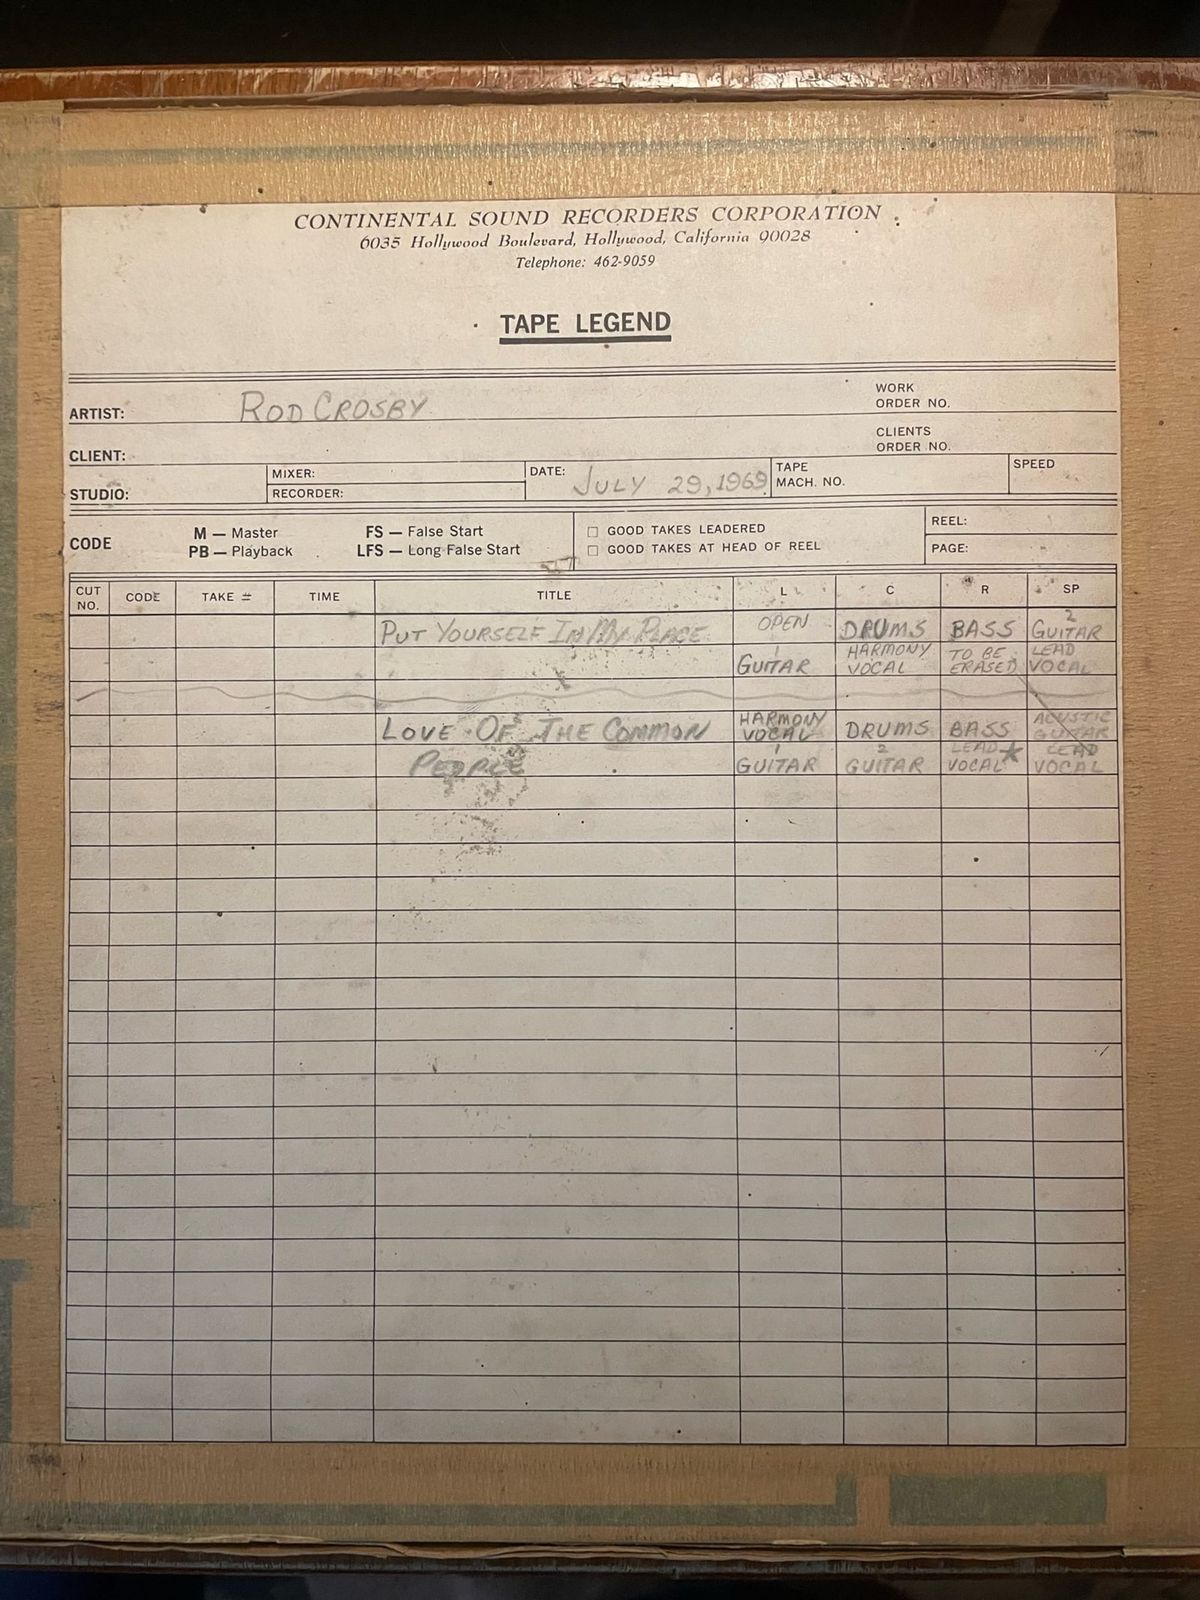 CONTINENTAL SOUND RECORDERS CORPORATION
6035 Hollywood Boulevard, Hollywood, California 90028
Telephone: 462-9059
TAPE LEGEND
ARTIST: ROD CROSBY WORK ORDER NO.
CLIENT: CLIENTS ORDER NO.
STUDIO: MIXER: RECORDER: DATE: JULY 29, 1969 TAPE MACH. NO. SPEED
CODE M — Master FS — False Start □ GOOD TAKES LEADERED REEL:
PB — Playback LFS — Long False Start □ GOOD TAKES AT HEAD OF REEL PAGE:
CUT NO. CODE TAKE # TIME TITLE L C R SP
PUT YOURSELF IN MY PLACE OPEN DRUMS BASS 2 GUITAR
1 GUITAR HARMONY VOCAL TO BE ERASED LEAD VOCAL
LOVE OF THE COMMON HARMONY VOCAL DRUMS BASS ACUSTIC GUITAR
PEOPLE 1 GUITAR 2 GUITAR LEAD VOCAL * LEAD VOCAL